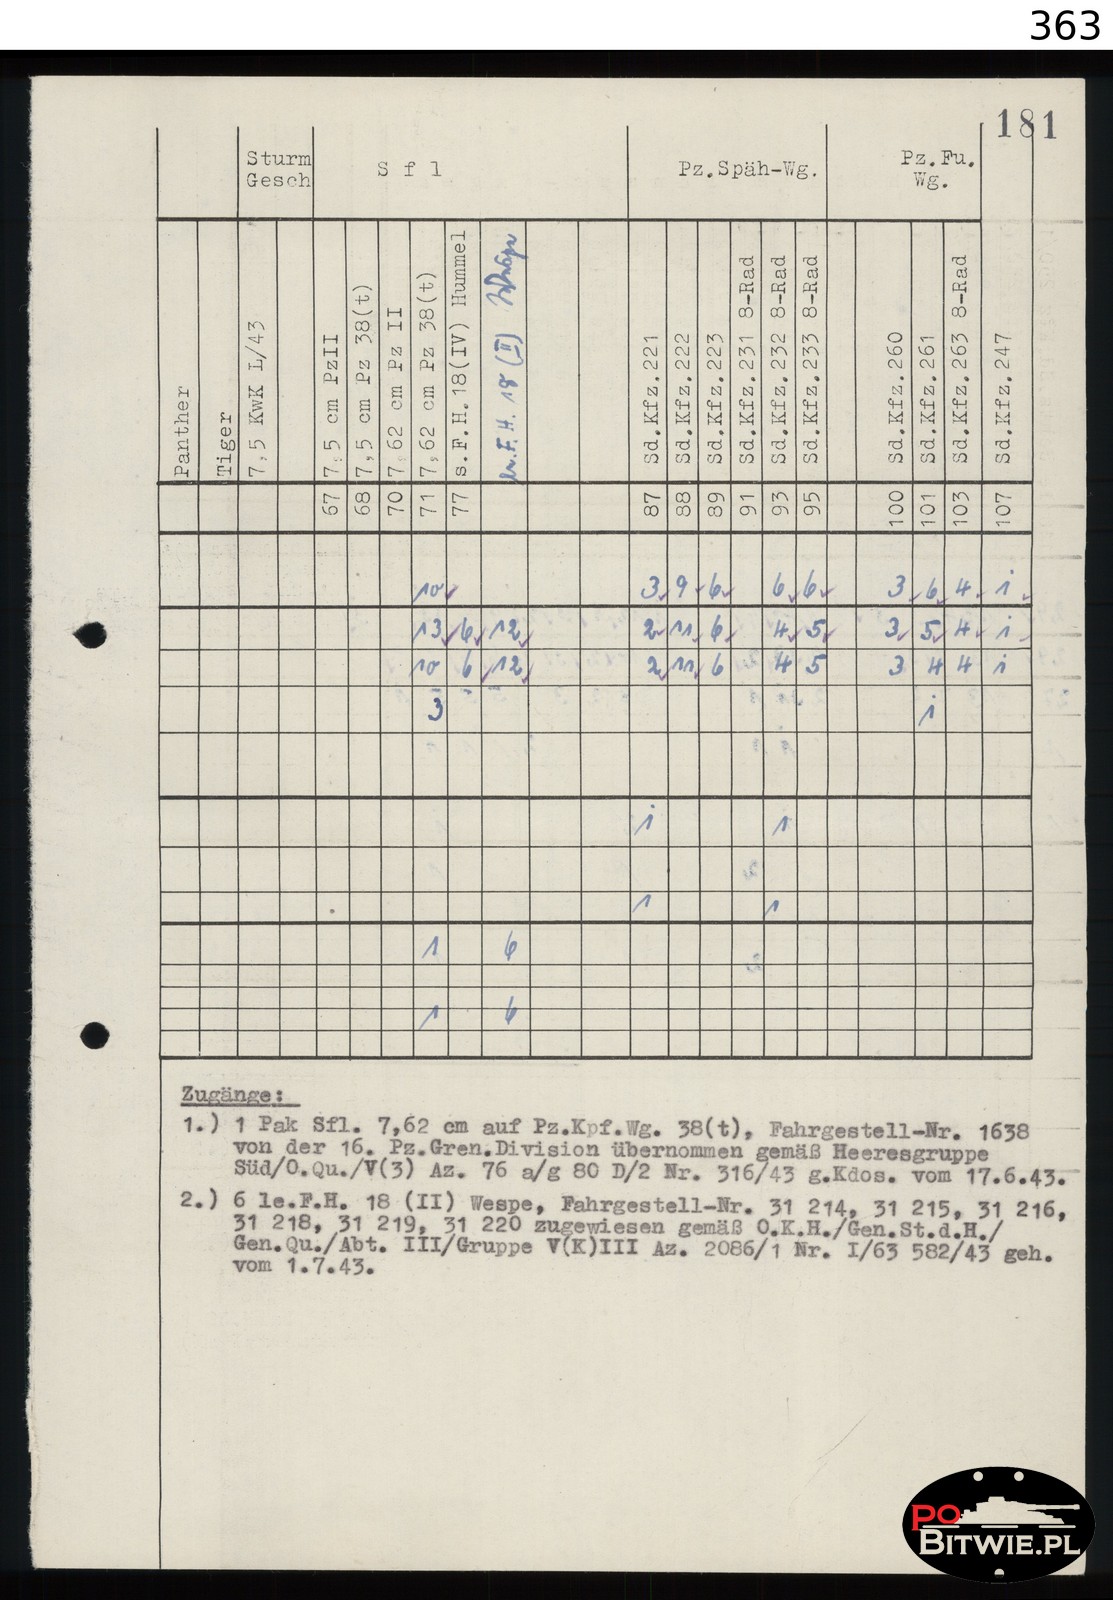 363
181
Sturm
Gesch
S f l
Pz.Späh-Wg.
Pz.Fu.
Wg.
Panther
Tiger
7,5 KwK L/43
7,5 cm PzII
7,5 cm Pz 38(t)
7,62 cm Pz II
7,62 cm Pz 38(t)
s.F.H.18(IV) Hummel
le.F.H. 18 (II) Wespe
Sd.Kfz.221
Sd.Kfz.222
Sd.Kfz.223
Sd.Kfz.231 8-Rad
Sd.Kfz.232 8-Rad
Sd.Kfz.233 8-Rad
Sd.Kfz.260
Sd.Kfz.261
Sd.Kfz.263 8-Rad
Sd.Kfz.247
67 68 70 71 77 87 88 89 91 93 95 100 101 103 107
10 3 9 6 6 6 3 6 4 1
13 6 12 2 11 6 4 5 3 5 4 1
10 6 12 2 11 6 4 5 3 4 4 1
3 1
1 1
1 1
1 6
1 6
Zugänge:
1.) 1 Pak Sfl. 7,62 cm auf Pz.Kpf.Wg. 38(t), Fahrgestell-Nr. 1638
von der 16. Pz.Gren.Division übernommen gemäß Heeresgruppe
Süd/O.Qu./V(3) Az. 76 a/g 80 D/2 Nr. 316/43 g.Kdos. vom 17.6.43.
2.) 6 le.F.H. 18 (II) Wespe, Fahrgestell-Nr. 31 214, 31 215, 31 216,
31 218, 31 219, 31 220 zugewiesen gemäß O.K.H./Gen.St.d.H./
Gen.Qu./Abt. III/Gruppe V(K)III Az. 2086/1 Nr. I/63 582/43 geh.
vom 1.7.43.
PO
BITWIE.PL